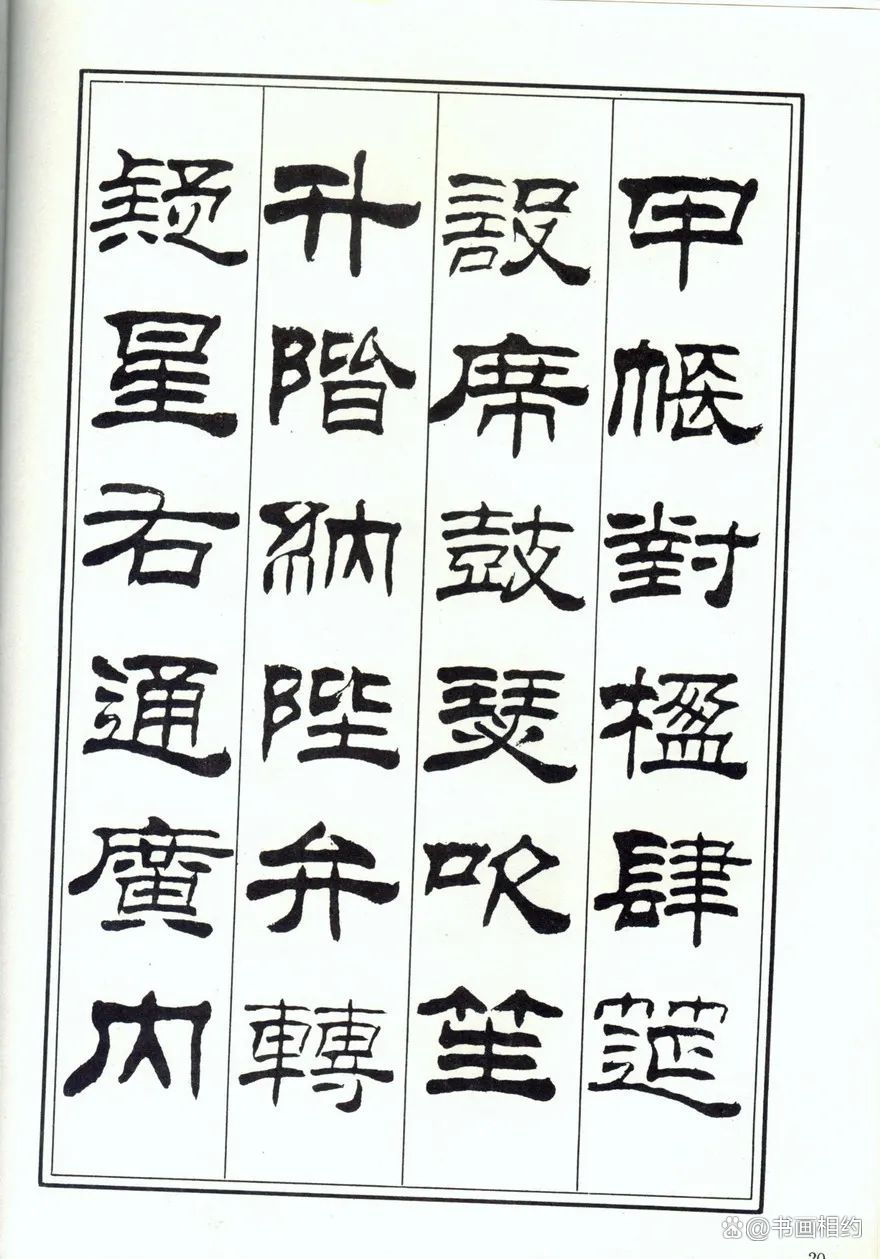 甲帳對楹肆筵
設席鼓瑟吹笙
升階納陛弁轉
疑星右通廣內
20
@书画相约